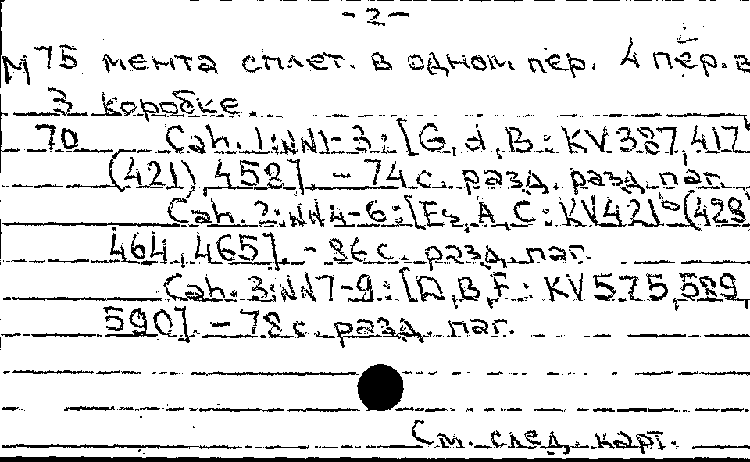 -2-
М 75 мента сплет. в одном пер. 4 пер. в
3 коробке.
70 Cah. 1: NN1-3: [G, d, B: KV387, 417
(421), 458]. - 74 с. разд. разд. паг.
Cah. 2: NN4-6: [Es, A, C: KV421b (428
464, 465]. - 86 с. разд. паг.
Cah. 3: NN7-9: [D, B, F: KV575, 589,
590]. - 78 с. разд. паг.
См. след. карт.